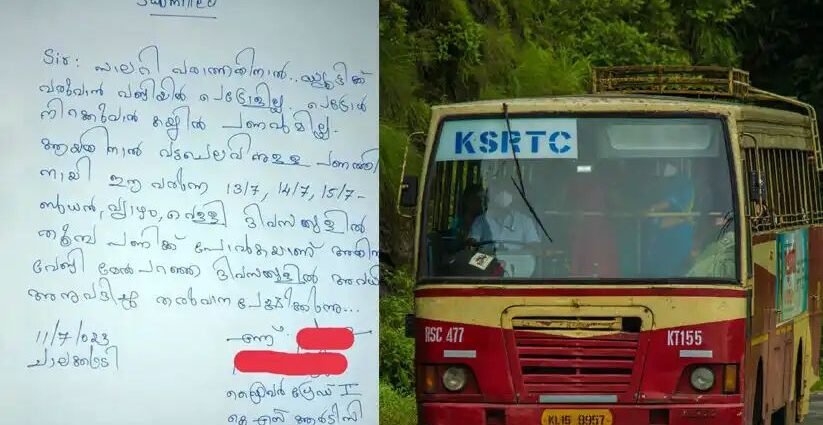 Sir: സാലറി വരാത്തതിനാൽ.. ഡ്യൂട്ടിക്ക്
വരുവാൻ വണ്ടിയിൽ പെട്രോളില്ല. പെട്രോൾ
നിറക്കുവാൻ കയ്യിൽ പണവുമില്ല.
ആയതിനാൽ വട്ടചെലവിനുള്ള പണത്തി
നായി ഈ വരുന്ന 13/7, 14/7, 15/7-
ബുധൻ, വ്യാഴം, വെള്ളി ദിവസങ്ങളിൽ
തൂമ്പ പണിക്ക് പോവുകയാണ് അതിനു
വേണ്ടി മേൽപറഞ്ഞ ദിവസങ്ങളിൽ അവധി
അനുവദിച്ചു തരുവാനപേക്ഷിക്കുന്നു...
11/7/023 എന്ന്
ചാലക്കുടി
ഡ്രൈവർ ഗ്രേഡ് II
കെ എസ് ആർടിസി
KSRTC
RSC 477
KT155
KL15 9957